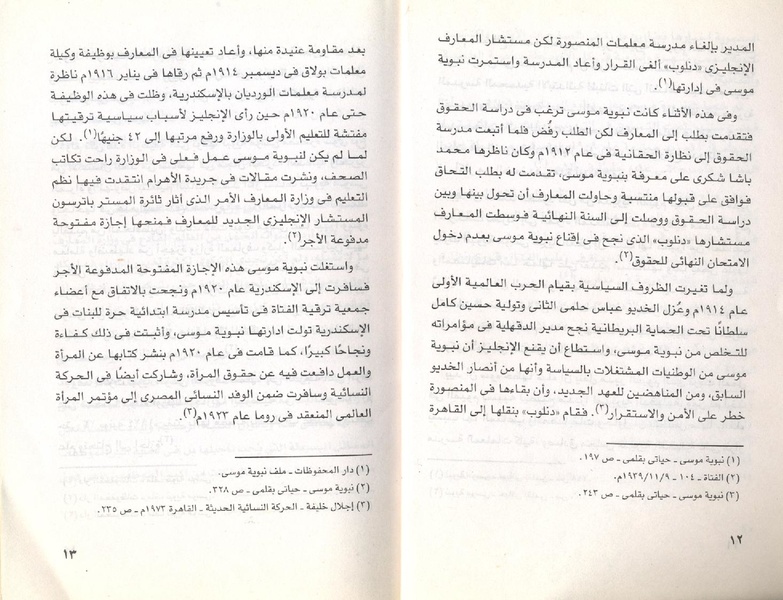 المدير بإلغاء مدرسة معلمات المنصورة لكن مستشار المعارف
الإنجليزى «دنلوب» ألغى القرار وأعاد المدرسة واستمرت نبوية
موسى فى إدارتها(١).
وفى هذه الأثناء كانت نبوية موسى ترغب فى دراسة الحقوق
فتقدمت بطلب إلى المعارف لكن الطلب رفُض فلما أتبعت مدرسة
الحقوق إلى نظارة الحقانية فى عام ١٩١٢م وكان ناظرها محمد
باشا شكرى على معرفة بنبوية موسى، تقدمت له بطلب التحاق
فوافق على قبولها منتسبة وحاولت المعارف أن تحول بينها وبين
دراسة الحقوق ووصلت إلى السنة النهائية فوسطت المعارف
مستشارها «دنلوب» الذى نجح فى إقناع نبوية موسى بعدم دخول
الامتحان النهائى للحقوق(٢).
ولما تغيرت الظروف السياسية بقيام الحرب العالمية الأولى
عام ١٩١٤م وعُزل الخديو عباس حلمى الثانى وتولية حسين كامل
سلطانًا تحت الحماية البريطانية نجح مدير الدقهلية فى مؤامراته
للتخلص من نبوية موسى، واستطاع أن يقنع الإنجليز أن نبوية
موسى من الوطنيات المشتغلات بالسياسة وأنها من أنصار الخديو
السابق، ومن المناهضين للعهد الجديد، وأن بقاءها فى المنصورة
خطر على الأمن والاستقرار(٣). فقام «دنلوب» بنقلها إلى القاهرة
(١) نبوية موسى ـ حياتى بقلمى ـ ص ١٩٧.
(٢) الفتاة ـ ١٠٤ ـ ١٩٣٩/١١/٩م.
(٣) نبوية موسى ـ حياتى بقلمى ـ ص ٢٤٣.
١٢
بعد مقاومة عنيدة منها، وأعاد تعيينها فى المعارف بوظيفة وكيلة
معلمات بولاق فى ديسمبر ١٩١٤م ثم رقاها فى يناير ١٩١٦م ناظرة
لمدرسة معلمات الورديان بالإسكندرية، وظلت فى هذه الوظيفة
حتى عام ١٩٢٠م حين رأى الإنجليز لأسباب سياسية ترقيتها
مفتشة للتعليم الأولى بالوزارة ورفع مرتبها إلى ٤٢ جنيهًا(١). لكن
لما لم يكن لنبوية موسى عمل فعلى فى الوزارة راحت تكاتب
الصحف، ونشرت مقالات فى جريدة الأهرام انتقدت فيها نظم
التعليم فى وزارة المعارف الأمر الذى أثار ثائرة المستر باترسون
المستشار الإنجليزى الجديد للمعارف فمنحها إجازة مفتوحة
مدفوعة الأجر(٢).
واستغلت نبوية موسى هذه الإجازة المفتوحة المدفوعة الأجر
فسافرت إلى الإسكندرية عام ١٩٢٠م ونجحت بالاتفاق مع أعضاء
جمعية ترقية الفتاة فى تأسيس مدرسة ابتدائية حرة للبنات فى
الإسكندرية تولت ادارتها نبوية موسى، وأثبتت فى ذلك كفاءة
ونجاحًا كبيرًا، كما قامت فى عام ١٩٢٠م بنشر كتابها عن المرأة
والعمل دافعت فيه عن حقوق المرأة، وشاركت أيضًا فى الحركة
النسائية وسافرت ضمن الوفد النسائى المصرى إلى مؤتمر المرأة
العالمى المنعقد فى روما عام ١٩٢٣م(٣).
(١) دار المحفوظات ـ ملف نبوية موسى.
(٢) نبوية موسى ـ حياتى بقلمى ـ ص ٣٢٨.
(٣) إجلال خليفة ـ الحركة النسائية الحديثة ـ القاهرة ١٩٧٣م ـ ص ٢٣٥.
١٣